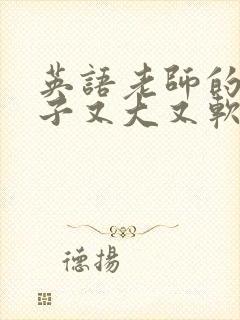 英語老師的
子又大又軟
德揚